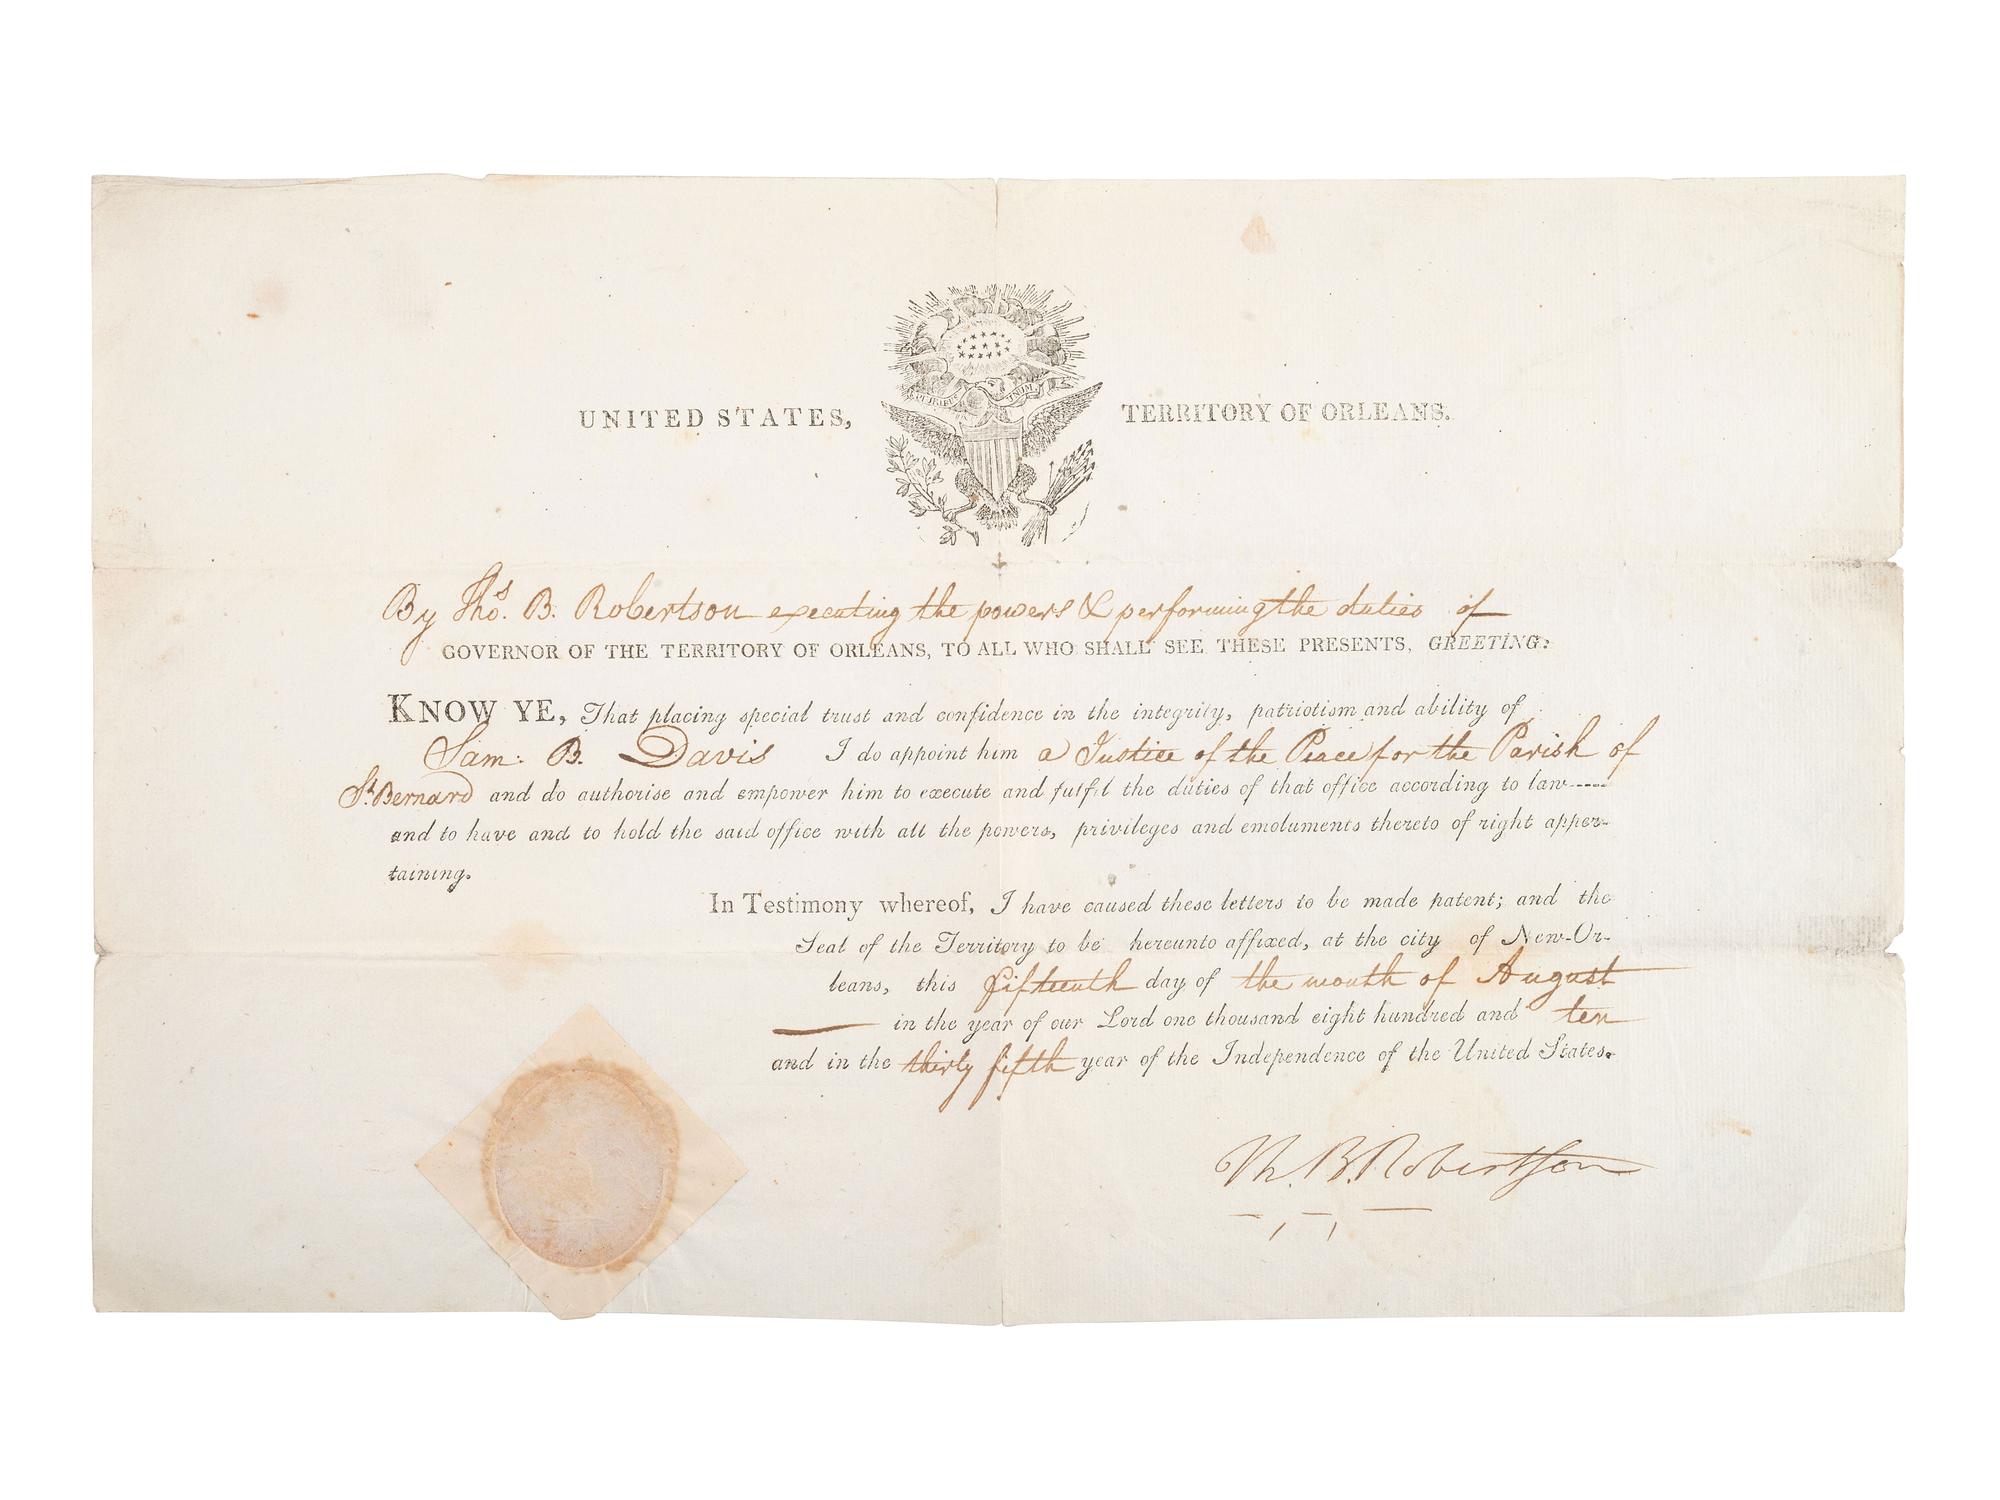 UNITED STATES, TERRITORY OF ORLEANS.
By Thos. B. Robertson executing the powers & performing the duties of
GOVERNOR OF THE TERRITORY OF ORLEANS, TO ALL WHO SHALL SEE THESE PRESENTS, GREETING:
KNOW YE, That placing special trust and confidence in the integrity, patriotism and ability of
Sam: B. Davis I do appoint him a Justice of the Peace for the Parish of
St. Bernard and do authorise and empower him to execute and fulfil the duties of that office according to law-----
and to have and to hold the said office with all the powers, privileges and emoluments thereto of right apper-
taining.
In Testimony whereof, I have caused these letters to be made patent; and the
Seal of the Territory to be hereunto affixed, at the city of New-Or-
leans, this fifteenth day of the month of August
in the year of our Lord one thousand eight hundred and ten
and in the thirty fifth year of the Independence of the United States.
Th. B. Robertson